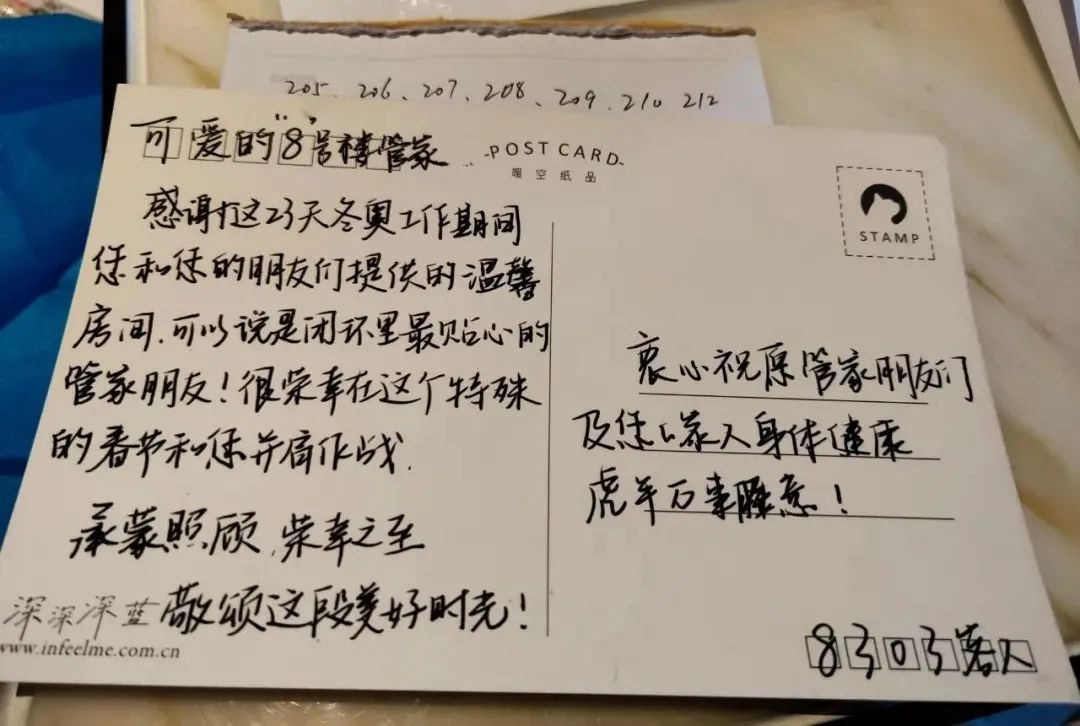 205、206、207、208、209、210 212
可爱的"8"号楼管家
-POST CARD-
暖空纸品
STAMP
感谢这23天冬奥工作期间
您和您的朋友们提供的温馨
房间,可以说是闭环里最贴心的
管家朋友！很荣幸在这个特殊
的春节和您并肩作战.
承蒙照顾,荣幸之至
敬颂这段美好时光！
深深深蓝
www.infeelme.com.cn
衷心祝愿管家朋友们
及您的家人身体健康
虎年万事顺意！
8303客人